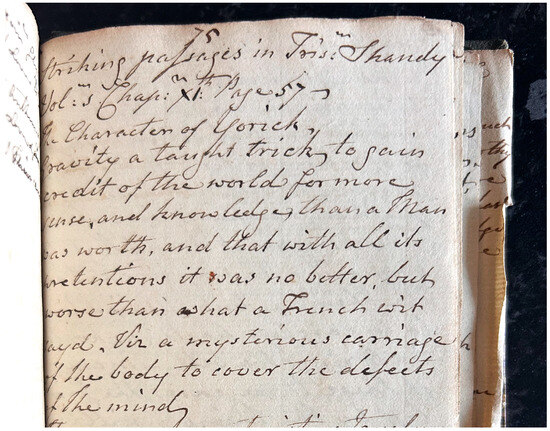 75
striking passages in Tris:m Shandy
Vol:m s Chap:r XI:th Page 57
The Character of Yorick,
Gravity a taught trick, to gain
credit of the world for more
sense, and knowledge, than a Man
was worth, and that with all its
pretentions it was no better, but
worse than what a French wit
sayd. Viz a mysterious carriage
of the body to cover the defects
of the mind,